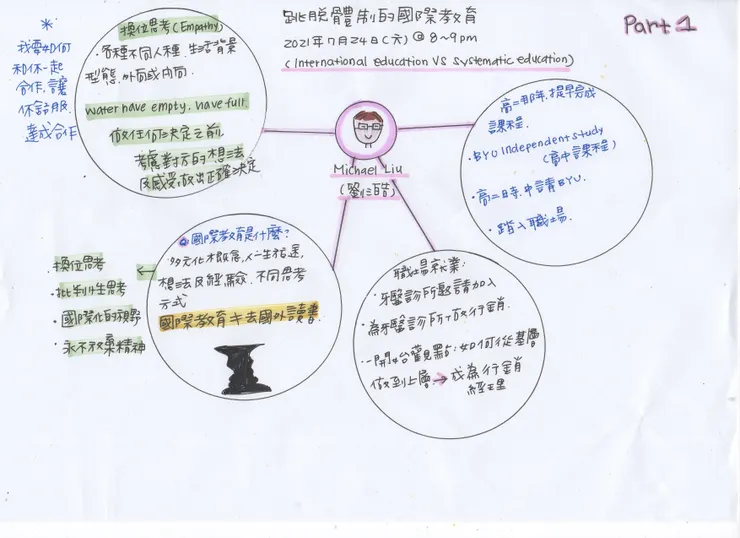 跳脫體制的國際教育
2021年7月24日(六) @ 8~9pm
(International education VS Systematic education)
Part 1
Michael Liu
(劉三皓)
*
我要如何
和你一起
合作,讓
你舒服
達成合作
換位思考(Empathy)
·各種不同人種,生活背景
型態,外向或內向.
water have empty, have full
做任何決定之前
考慮對方的想法
及感受,做出正確決定
高二那年,提早完成
課程.
·BYU Independent study
(高中課程)
·高二時,申請BYU.
·踏入職場.
國際教育是什麼?
多元化
想法及經驗.不同思考
方式
國際教育≠去國外讀書
·換位思考
·批判性思考
·國際化的視野
·永不放棄精神
職場就業:
·牙醫診所邀請加入
·為牙醫診所做行銷.
·一開始觀點:如何從基層
做到上層→成為行銷
經理